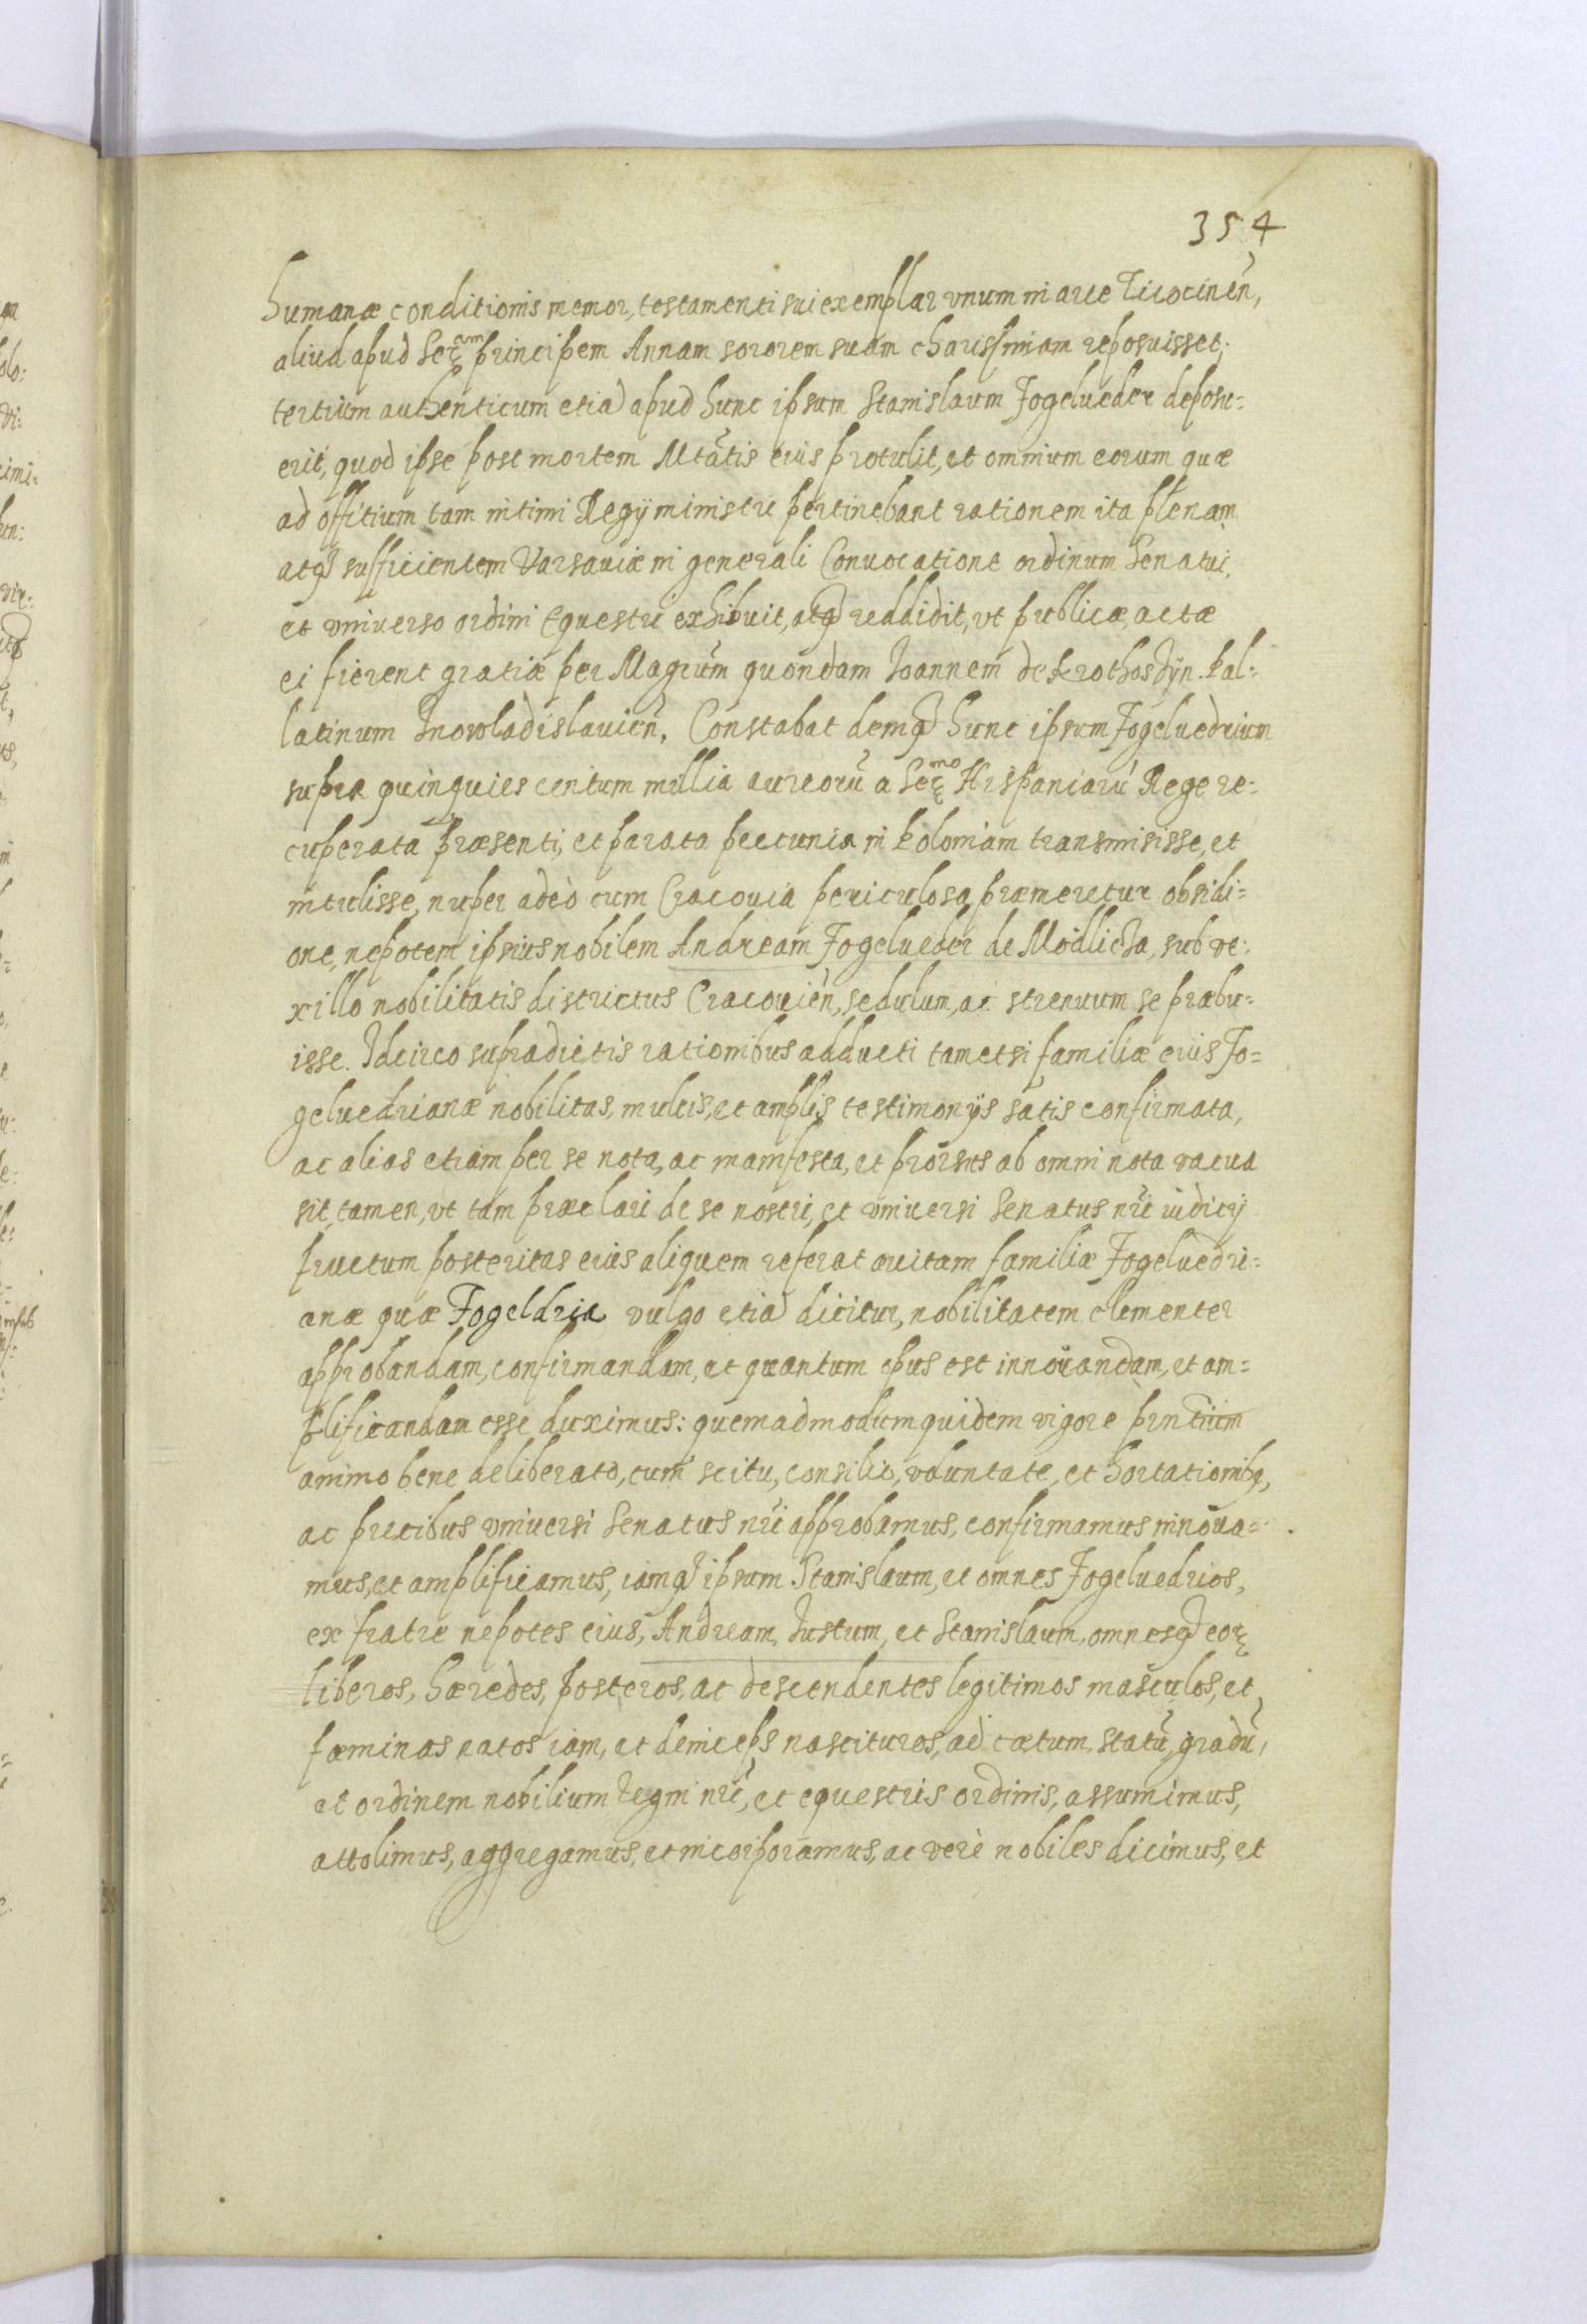 354
humanæ conditionis memor, testamenti sui exemplar vnum in arce Ticocinen̄,
aliud apud Ser^am principem Annam sororem suam charissimam reposuisset,
tertium authenticum etiā apud hunc ipsum Stanislaum Fogelueder deposu=
erit, quod ipse post mortem Mtātis eius protulit, et omnium eorum quæ
ad offitium tam intimi Regij ministri pertinebant rationem ita plenam
atq̄ sufficientem Varsauiæ in generali Conuocatione ordinum Senatui,
et vniuerso ordini Equestri exhibuit, atq̄ reddidit, vt publicæ actæ
ei fierent gratiæ per Magcūm quondam Ioannem de Krothostyn. Pal=
latinum Inowladislauien̄. Constabat demq̄ hunc ipsum Fogeluedrium
supra quinquies centum millia aureorū a Ser^mo Hispaniarū Rege re=
cuperata præsenti, et parata pecunia in Poloniam transmisisse, et
intulisse, nuper adeò cum Cracouia periculosa præmeretur obsidi=
one, nepotem ipsius nobilem Andream Fogelueder de Modlicza, sub ve=
xillo nobilitatis districtus Cracouien̄, sedulum, ac strenuum se præbu=
isse. Idcirco supradictis rationibus adducti tametsi familiæ eius Fo=
geluedrianæ nobilitas, multis, et amplis testimonijs satis confirmata,
ac alias etiam per se nota, ac manifesta, et prorsus ab omni nota vacua
sit, tamen, vt tam præclari de se nostri, et vniuersi Senatus nr̄i iuditij
fructum posteritas eius aliquem referat auitam familiæ Fogeluedri=
anæ quæ Fogeldria vulgo etiā dicitur, nobilitatem clementer
approbandam, confirmandam, et quantum opus est innouandam, et am=
plificandam esse duximus: quemadmodum quidem vigore prn̄tium
animo bene deliberato, cum scitu, consilio, voluntate, et hortationibq,
ac precibus vniuersi Senatus nr̄i approbamus, confirmamus innoua=
mus, et amplificamus, iamq̄ ipsum Stanislaum, et omnes Fogeluedrios,
ex fratre nepotes eius, Andream, Iustum, et Stanislaum, omnesq̄ eoꝝ
liberos, hæredes, posteros, ac descendentes legitimos masculos, et
fœminas natos iam, et deinceps nascituros, ad cœtum, statū, gradū,
et ordinem nobilium Regni nr̄i, et equestris ordinis, assumimus,
attolimus, aggregamus, et incorporamus, ac verè nobiles dicimus, et